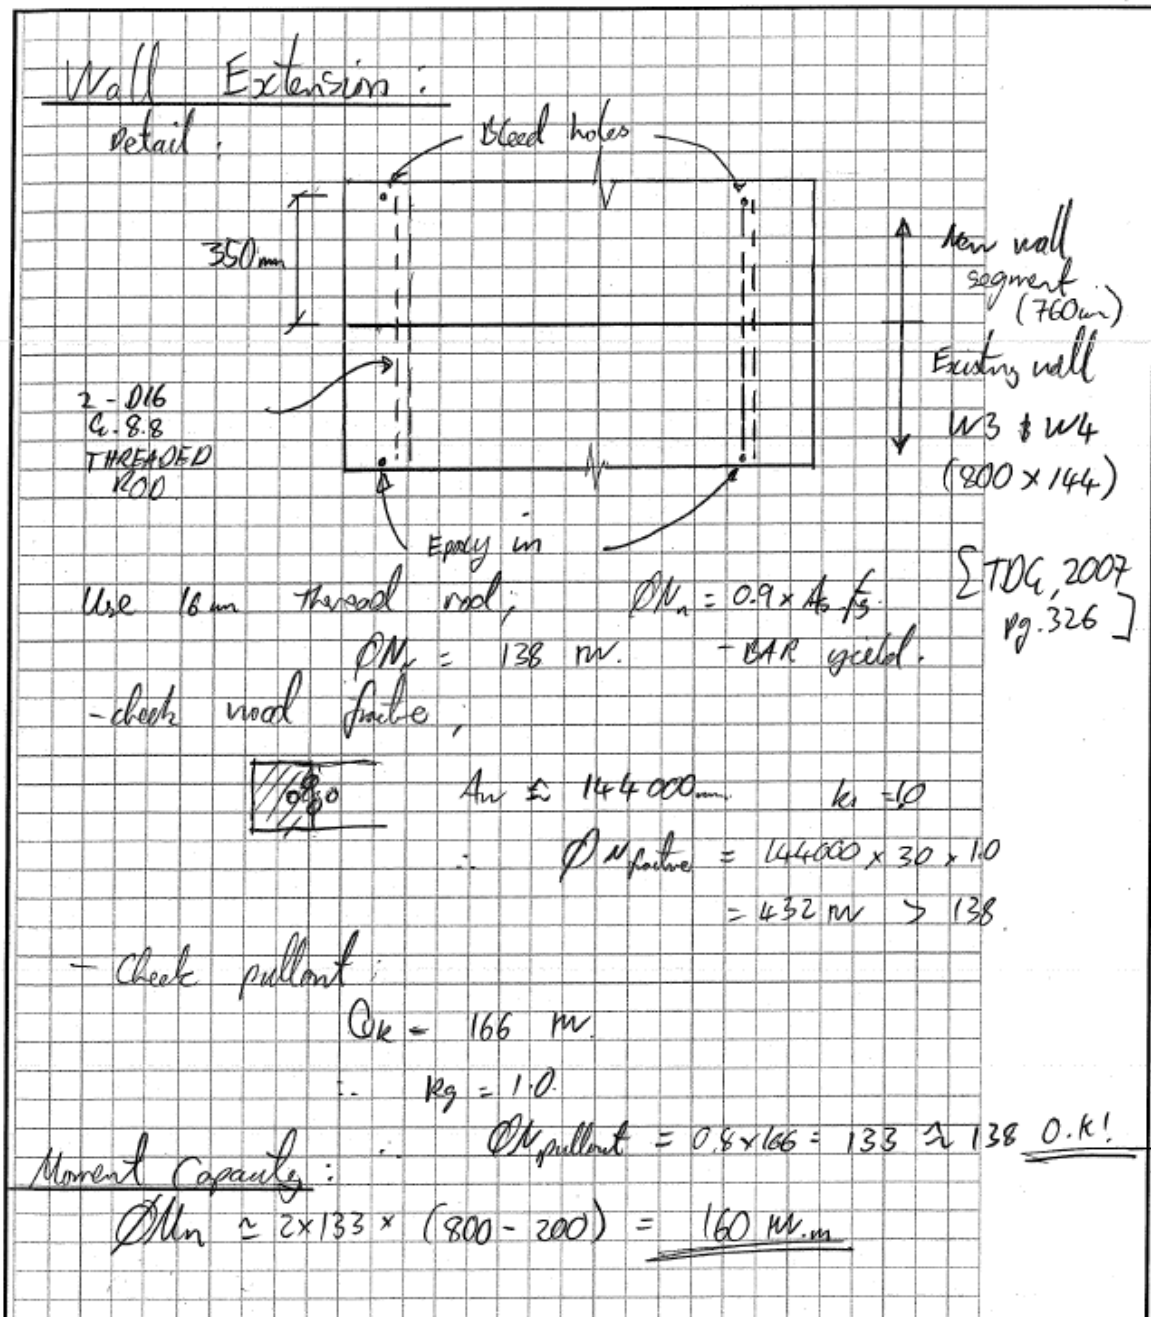 Wall Extension :
Detail :
Bleed holes
350mm
New wall
segment
(760mm)
Existing wall
W3 & W4
(800 x 144)
2 - D16
G. 8.8
THREADED
ROD
Epoxy in
Use 16mm thread rod; ØNn = 0.9 x As fs.
[TDG, 2007
pg. 326]
ØNn = 138 kN. - BAR yield.
- check wood fractre ;
Aw ≈ 144000mm k1 = 1.0
∴ ØNfractre = 144000 x 30 x 1.0
= 432 kN > 138
- Check pullout :
Qk = 166 kN.
∴ kg = 1.0.
∴ ØNpullout = 0.8 x 166 = 133 ≈ 138 O.K!
Moment Capacity :
ØMn ≈ 2 x 133 x (800 - 200) = 160 kN.m